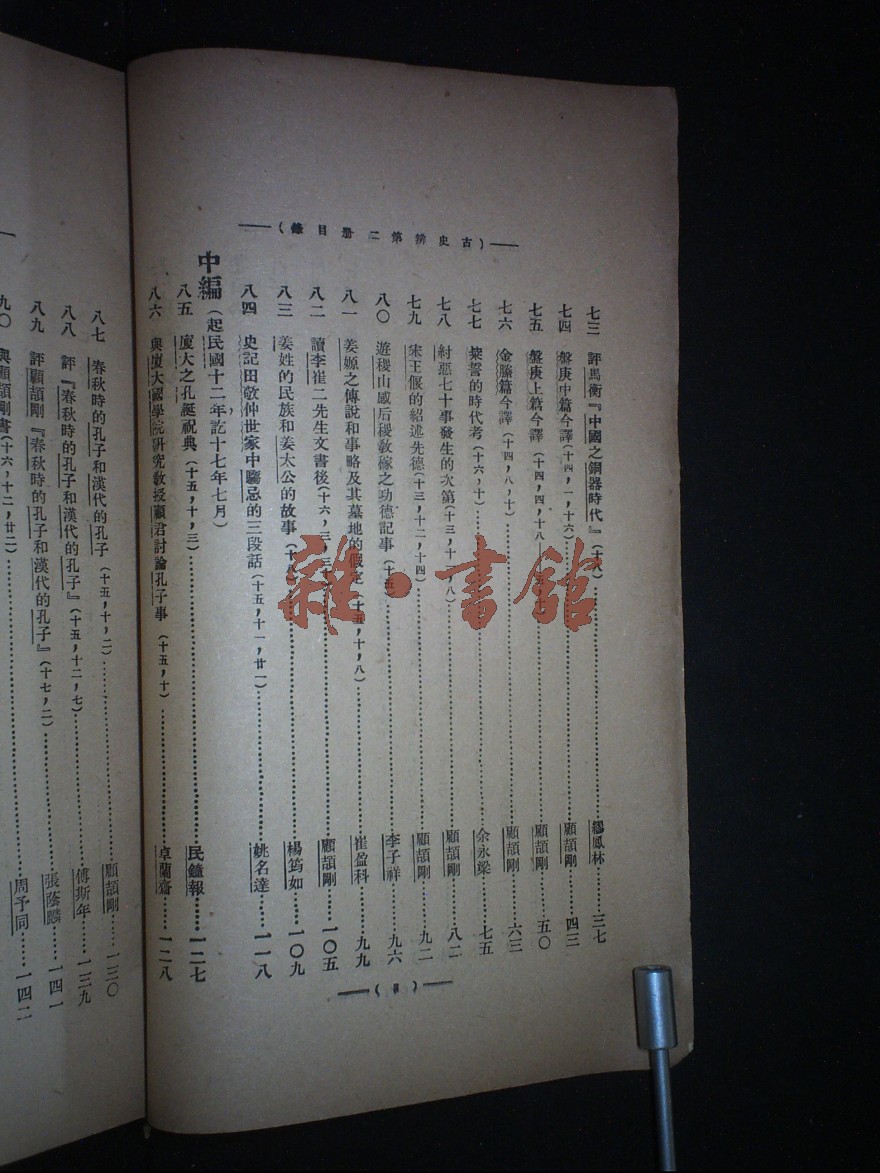 ——(古史辨第二册目錄)——
七三 評馬衡『中國之銅器時代』(十……繆鳳林……三七
七四 盤庚中篇今譯(十四,一,十六)……顧頡剛……四三
七五 盤庚上篇今譯(十四,四,十八……顧頡剛……五〇
七六 金縢篇今譯(十四,八,十)……顧頡剛……六三
七七 粊誓的時代考(十六,十)……余永梁……七五
七八 紂惡七十事發生的次第(十三,十一,八)……顧頡剛……八二
七九 宋王偃的紹述先德(十三,十二,十四)……顧頡剛……九二
八〇 遊稷山感后稷敎稼之功德記事(十五……李子祥……九六
八一 姜嫄之傳說和事略及其墓地的假定(十五,十,八)……崔盈科……九九
八二 讀李崔二先生文書後(十六,三,三十)……顧頡剛……一〇五
八三 姜姓的民族和姜太公的故事(十八……楊筠如……一〇九
八四 史記田敬仲世家中騶忌的三段話(十五,十一,廿一)……姚名達……一一八
中編(起民國十二年,訖十七年七月)
八五 廈大之孔誕祝典(十五,十,三)……民鐘報……一二七
八六 與廈大國學院研究敎授顧君討論孔子事(十五,十)……卓蘭齋……一二八
八七 春秋時的孔子和漢代的孔子(十五,十,二)……顧頡剛……一三〇
八八 評『春秋時的孔子和漢代的孔子』(十五,十二,七)……傅斯年……一三九
八九 評顧頡剛『春秋時的孔子和漢代的孔子』(十七,二)……張蔭麟……一四一
九〇 與顧頡剛書(十六,十二,廿二)……周予同……一四二
雜·書館